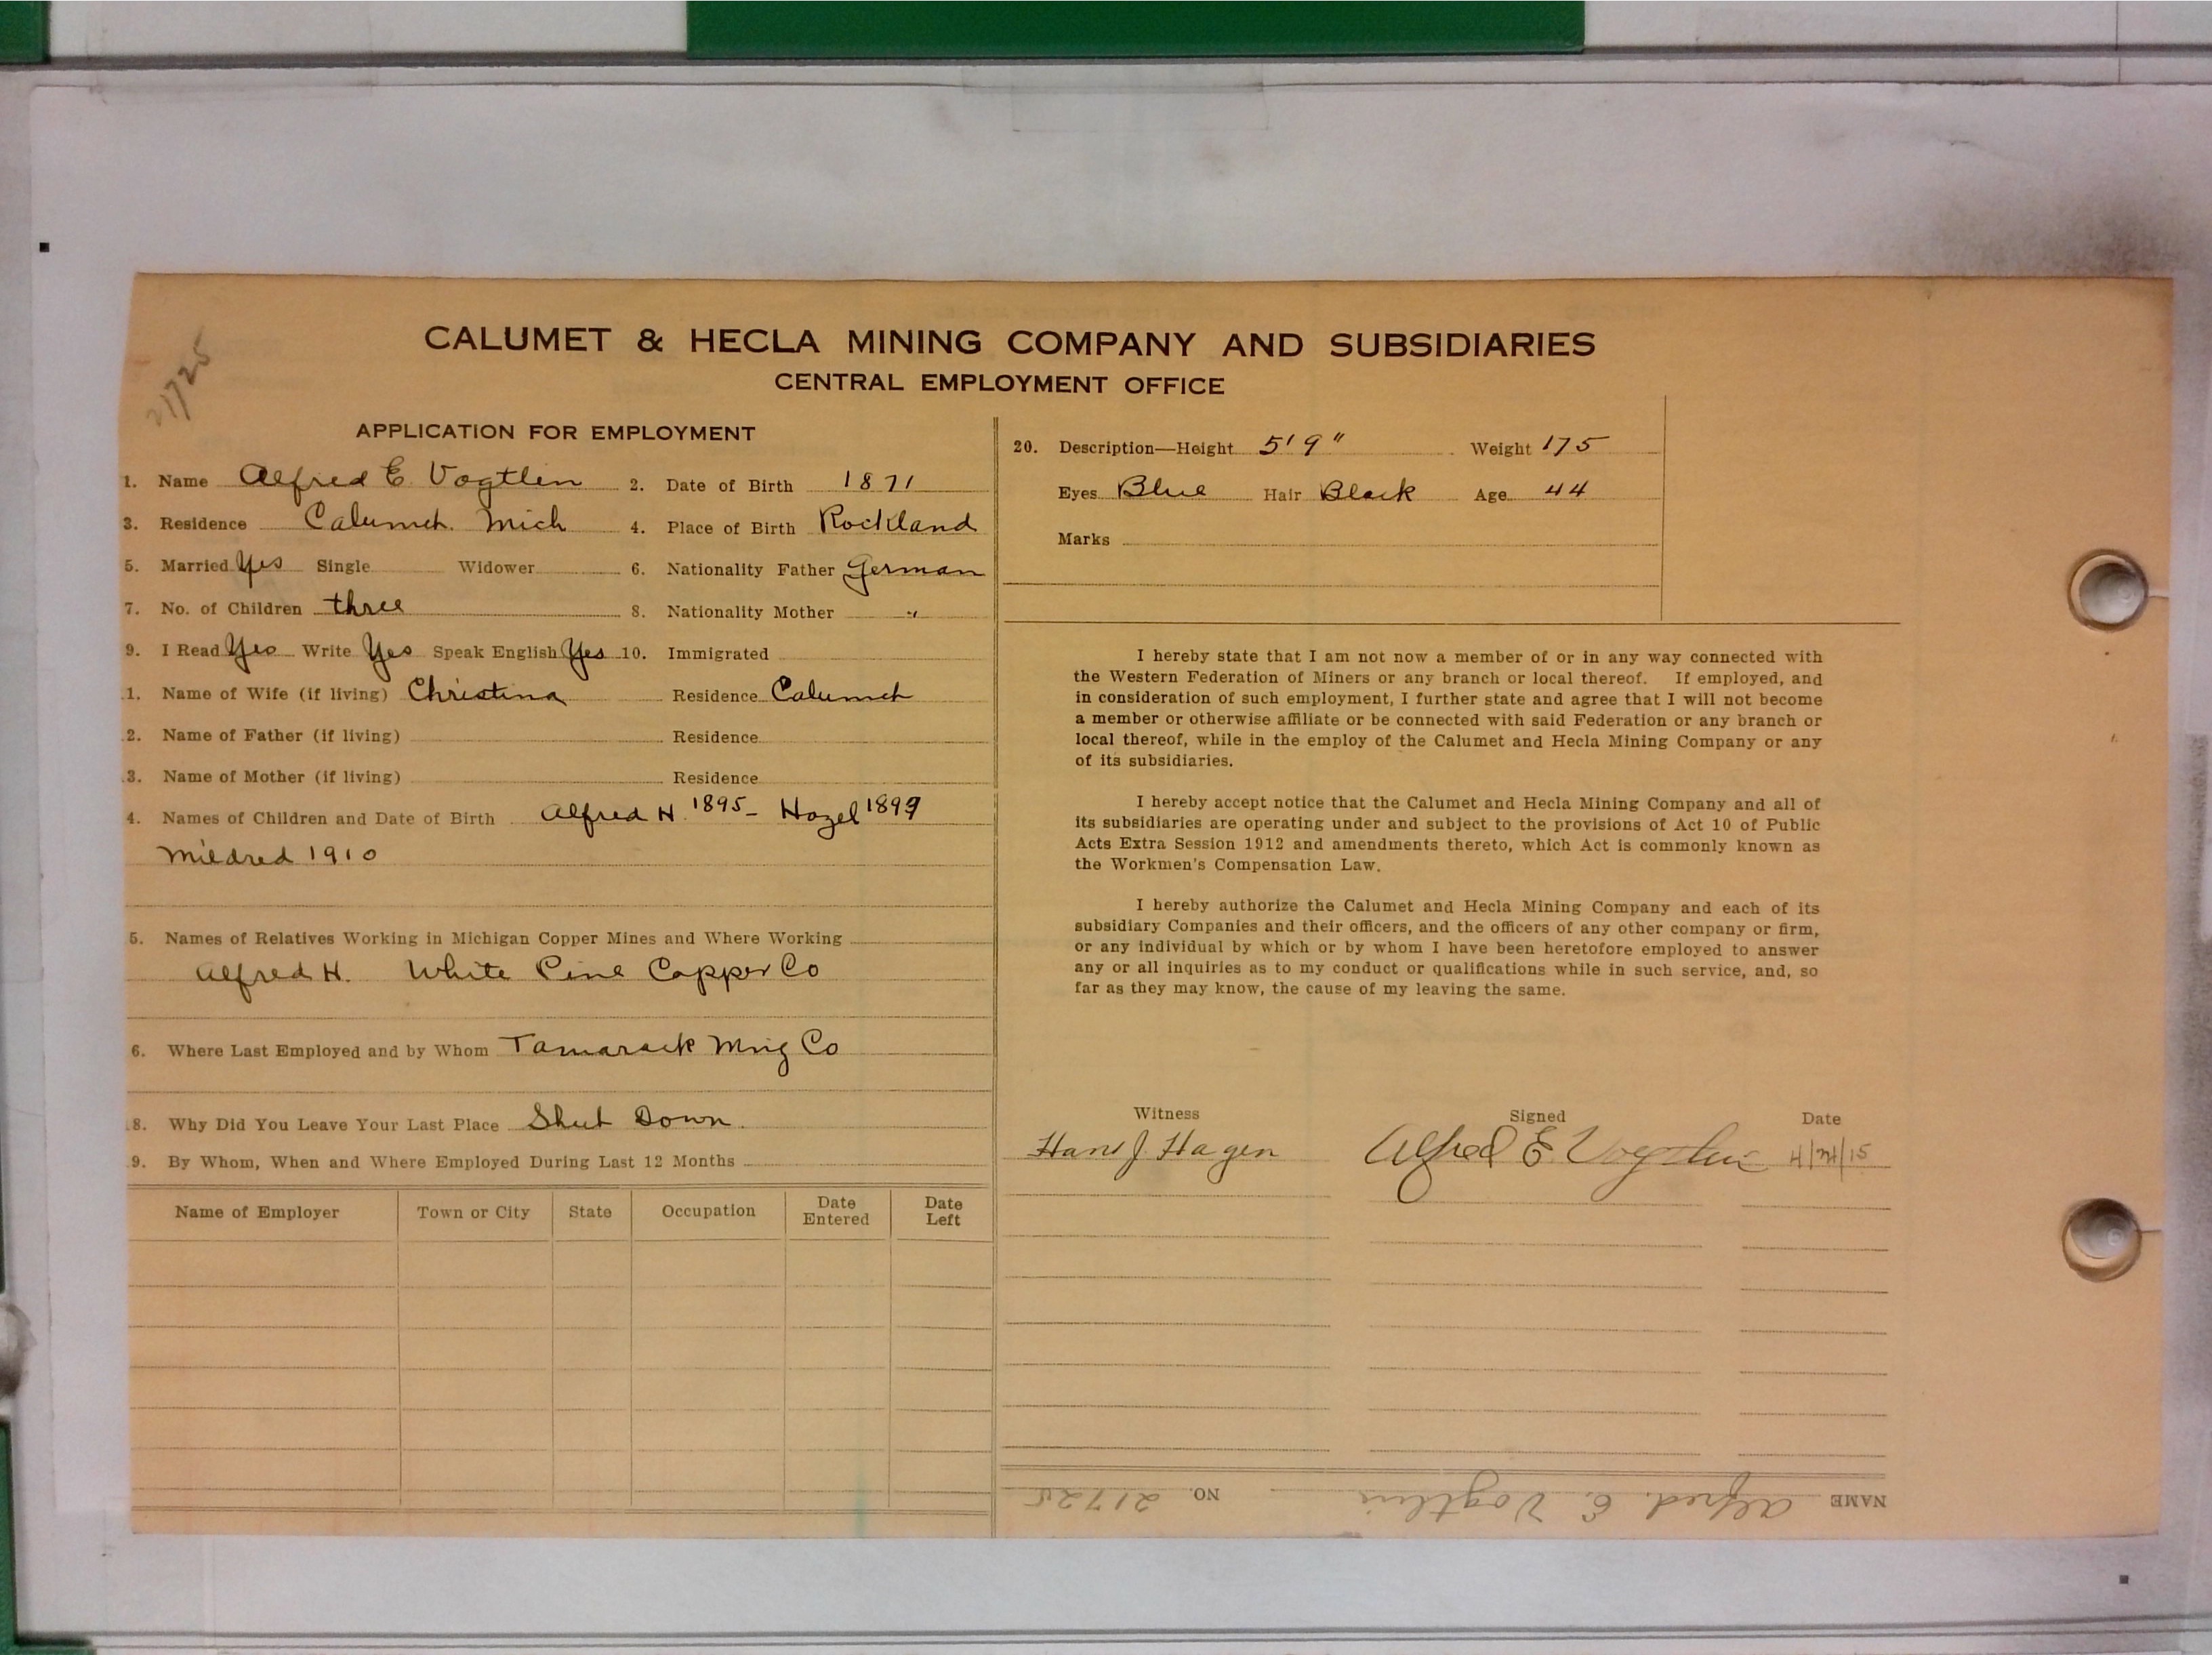 21725
CALUMET & HECLA MINING COMPANY AND SUBSIDIARIES
CENTRAL EMPLOYMENT OFFICE
APPLICATION FOR EMPLOYMENT
1. Name Alfred E. Vogtlin 2. Date of Birth 1871
3. Residence Calumet. Mich 4. Place of Birth Rockland
5. Married Yes Single Widower 6. Nationality Father German
7. No. of Children three 8. Nationality Mother "
9. I Read Yes Write Yes Speak English Yes 10. Immigrated
1. Name of Wife (if living) Christina Residence Calumet
2. Name of Father (if living) Residence
3. Name of Mother (if living) Residence
4. Names of Children and Date of Birth Alfred H. 1895 - Hazel 1899
Mildred 1910
5. Names of Relatives Working in Michigan Copper Mines and Where Working
Alfred H. White Pine Copper Co
6. Where Last Employed and by Whom Tamarack Mng Co
8. Why Did You Leave Your Last Place Shut Down.
9. By Whom, When and Where Employed During Last 12 Months
Name of Employer Town or City State Occupation Date Entered Date Left
20. Description—Height 5'9" Weight 175
Eyes Blue Hair Black Age 44
Marks
I hereby state that I am not now a member of or in any way connected with
the Western Federation of Miners or any branch or local thereof. If employed, and
in consideration of such employment, I further state and agree that I will not become
a member or otherwise affiliate or be connected with said Federation or any branch or
local thereof, while in the employ of the Calumet and Hecla Mining Company or any
of its subsidiaries.
I hereby accept notice that the Calumet and Hecla Mining Company and all of
its subsidiaries are operating under and subject to the provisions of Act 10 of Public
Acts Extra Session 1912 and amendments thereto, which Act is commonly known as
the Workmen's Compensation Law.
I hereby authorize the Calumet and Hecla Mining Company and each of its
subsidiary Companies and their officers, and the officers of any other company or firm,
or any individual by which or by whom I have been heretofore employed to answer
any or all inquiries as to my conduct or qualifications while in such service, and, so
far as they may know, the cause of my leaving the same.
Witness Signed Date
Hans J. Hagen Alfred E. Vogtlin 4/21/15
NAME Alfred. E. Vogtlin NO. 21725